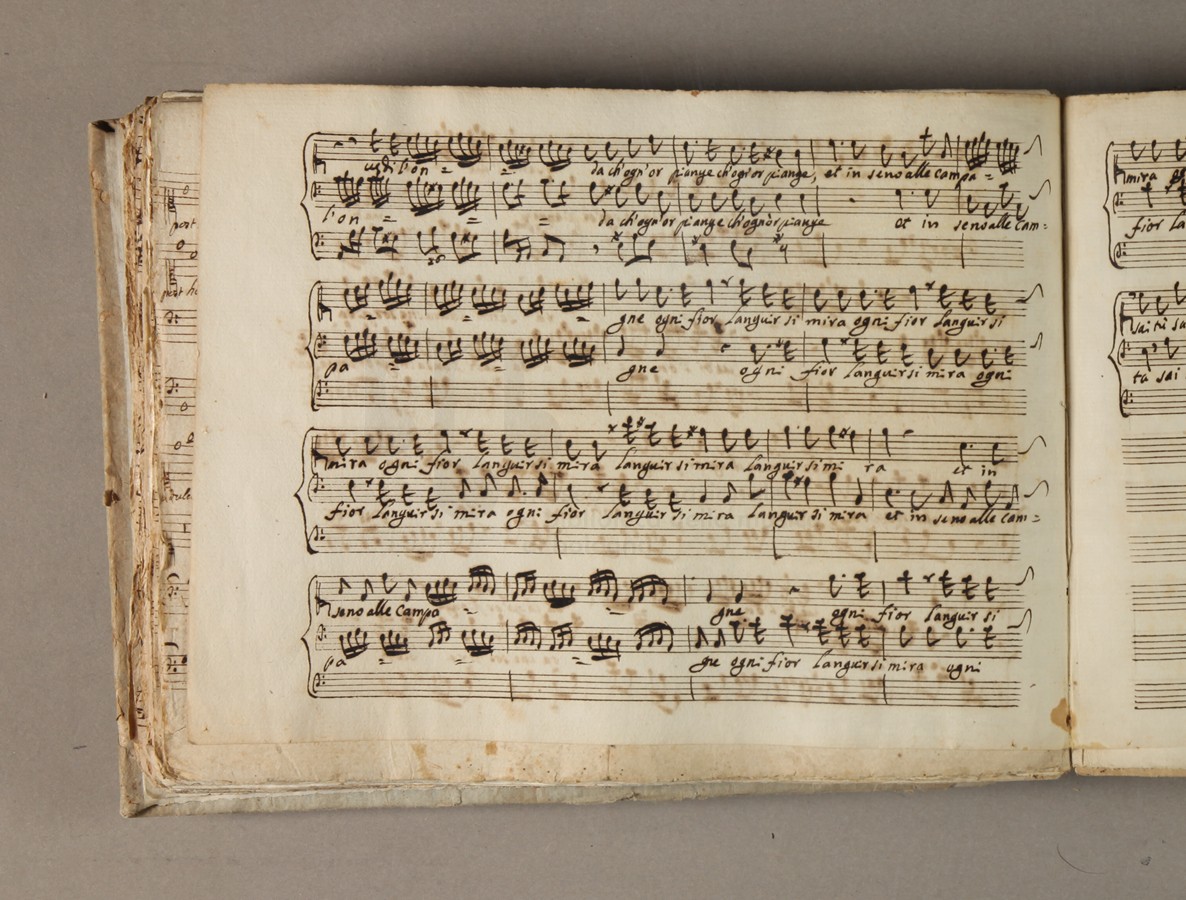 l'on = = da ch'ogn'or piange ch'ogn'or piange, et in seno alle campa =
l'on = = = da ch'ogn'or piange ch'ogn'or piange et in seno alle cam=
= = = gne ogni fior languir si mira ogni fior languir si
pa = = = gne ogni fior languir si mira ogni
mira ogni fior languir si mira languir si mira languir si mi ra et in
fior languir si mira ogni fior languir si mira languir si mira et in seno alle cam=
seno alle campa = = gne ogni fior languir si
pa = = = gne ogni fior languir si mira ogni
mira
fior la
sai tu sa
ta sai